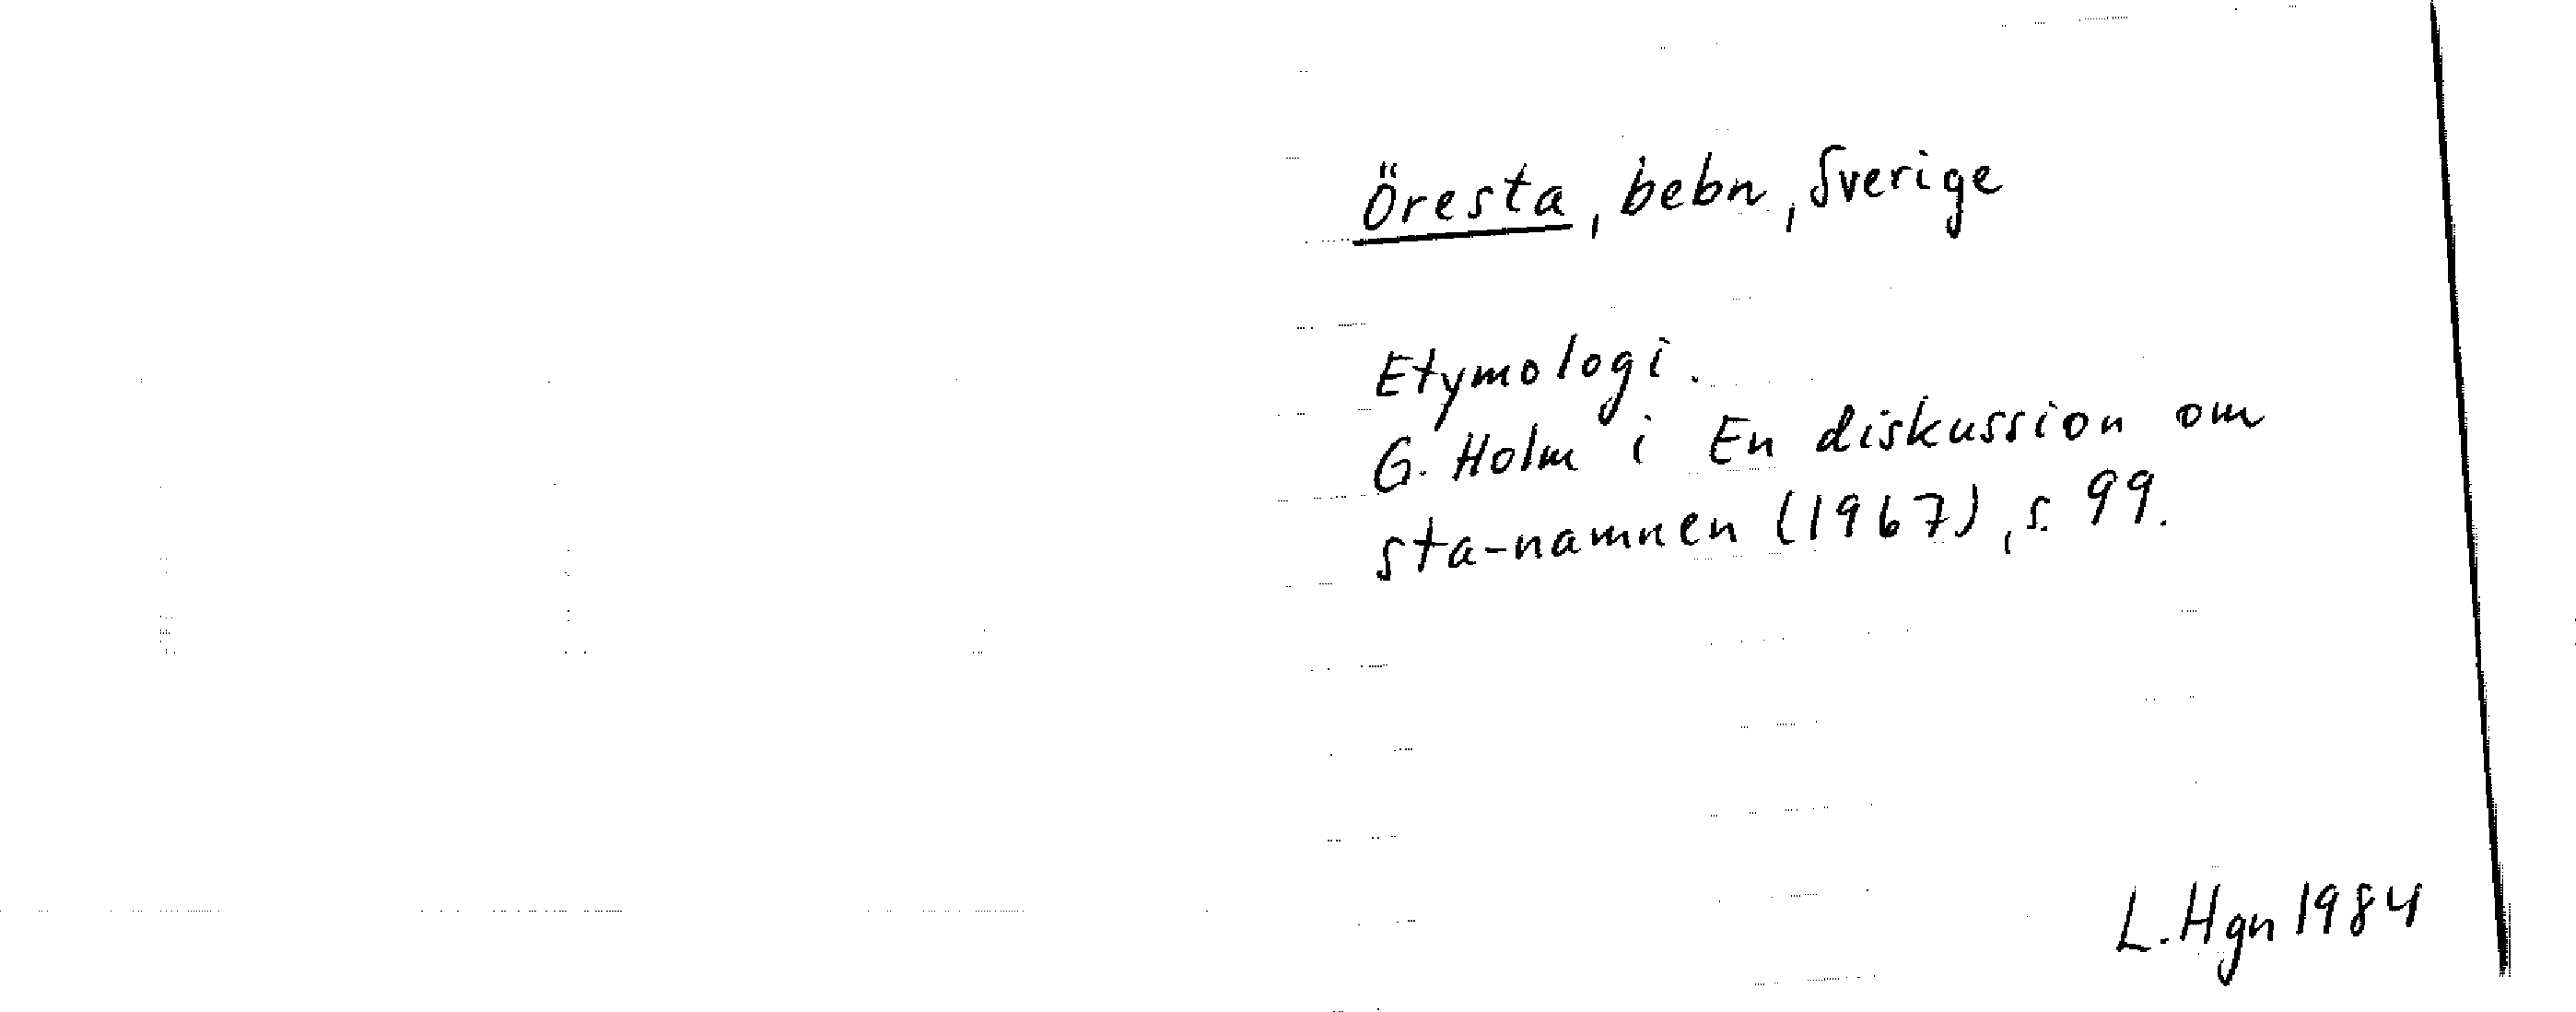 Öresta, bebn, Sverige
Etymologi.
G. Holm i En diskussion om
sta-namnen (1967), s. 99.
L. Hgn 1984